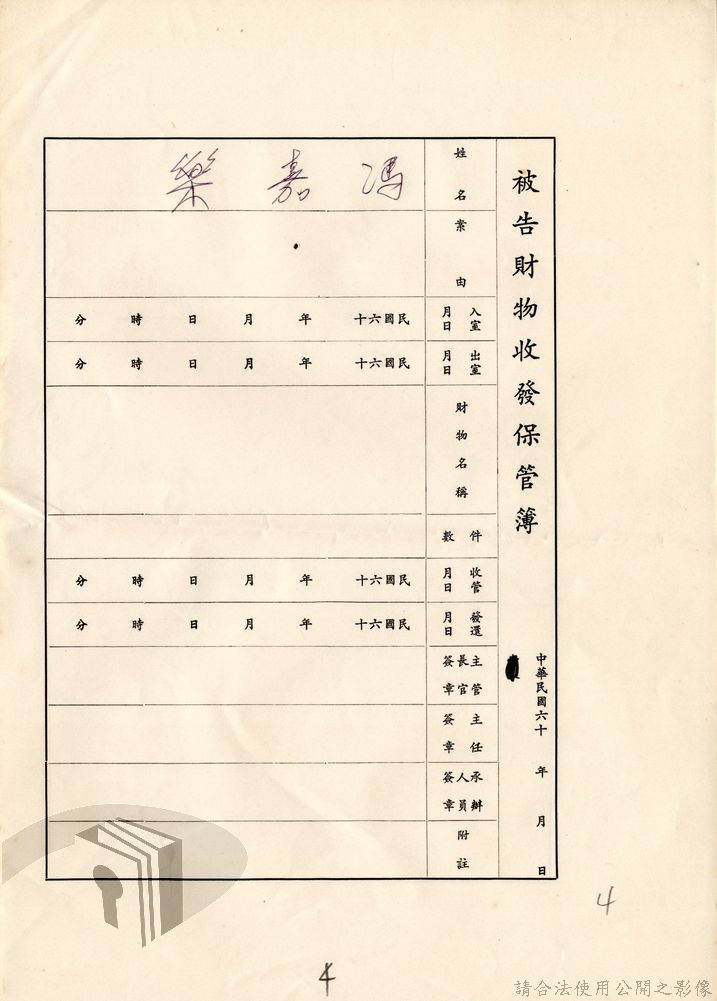 被告財物收發保管簿
中華民國六十 年 月 日
姓名
馮嘉樂
案由
入室月日
民國六十 年 月 日 時 分
出室月日
民國六十 年 月 日 時 分
財物名稱
件數
收管月日
民國六十 年 月 日 時 分
發還月日
民國六十 年 月 日 時 分
主管長官簽章
主任簽章
承辦人員簽章
附註
4
4
請合法使用公開之影像